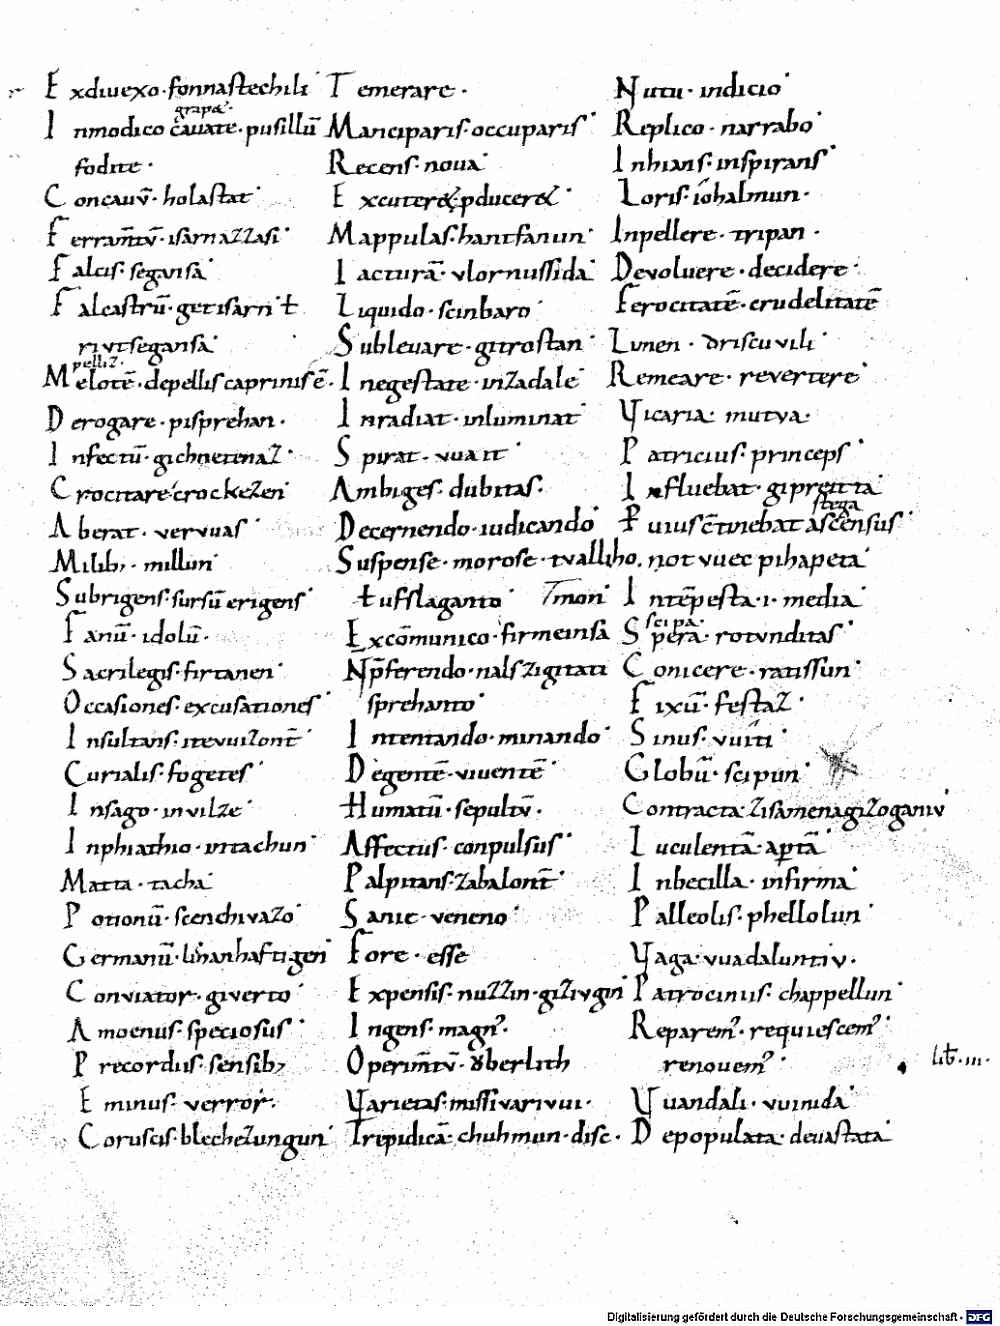 Exdiuexo · fonnastechili
grapæ ·
Inmodico cauate · pusillū
fodite ·
Concauū · holastat
Ferram̄tū · isarnazzasi
Falcis · segansa
Falcastrū · getisarn ł
riutsegansa
pelliz ·
Melotē · depellis caprinis ē ·
Derogare · pisprehan ·
Infectū · gichnetenaz ·
Crocitare crockezen
Aberat · vervuas
Milib; · millun
Subrigens · sursū erigens
Fanū · idolū ·
Sacrilegis · firtanen
Occasiones · excusationes
Insultans · itevuizont̄
Curialis · fogetes
Insago · invilze
Inphiathio · intachun
Matta · tacha
Potionū · scenchivazo
Germanū · linhanhaftigen
Conviator · giverto
Amoenus · speciosus
Precordiis · sensib;
Eminus · verror ·
Coruscis · blechezungun
Temerare ·
Manciparis · occuparis
Recens · noua
Excuter& · pducer&
Mappulas · hantfanun
Iacturā · vlornussida
Liquido · scinbaro
Subleuare · gitrostan
Inegestate · inzadale
Inradiat · inluminat
Spirat · vuait
Ambiges · dubitas ·
Decernendo · iudicando
Suspense · morose · tvalliho ·
ł ufslaganto
Excōmunico · firmeinsā
Np̄ferendo · nalszigitati
sprehanto
Intentando · minando
Degentē · viuentē
Humatū · sepultū ·
Affectus · conpulsus
Palpitans · zabalont̄
Sanie · veneno
Fore · esse
Expensis · nuzzin · giziugin
Ingens · magn̉ ·
Operim̄tū · vberlith
Varietas · missivarivui ·
Trepidicā · chuhmun · disc ·
Nutu · indicio
Replico · narrabo
Inhians · inspirans
Loris · iohalmun ·
Inpellere · tripan ·
Devoluere · decidere
Ferocitatē · crudelitatē
Limen · driscuvili
Remeare · revertere
Vicaria · mutva ·
Patricius · princeps
Influebat · giprettta
stega
P uius c̄tinebat ascensus
not vuec pihapeta
Intēpesta · i · media
scipa ·
Spera · rotunditas
Conicere · ratissun
Fixū · festaz ·
Sinus · vuiti
Globū · scipun
Contracta · zisamenagizoganiv
Luculentā · aptā
Inbecilla · infirma
Palleolis · phellolun
Vaga · vuadaluntiv ·
Patrocinius · chappellun
Reparem̉ · requiescem̉
renouem̉ ·
lib̄ · iii ·
Vuandali · vuinida
Depopulata · deuastata
Digitalisierung gefördert durch die Deutsche Forschungsgemeinschaft - DFG